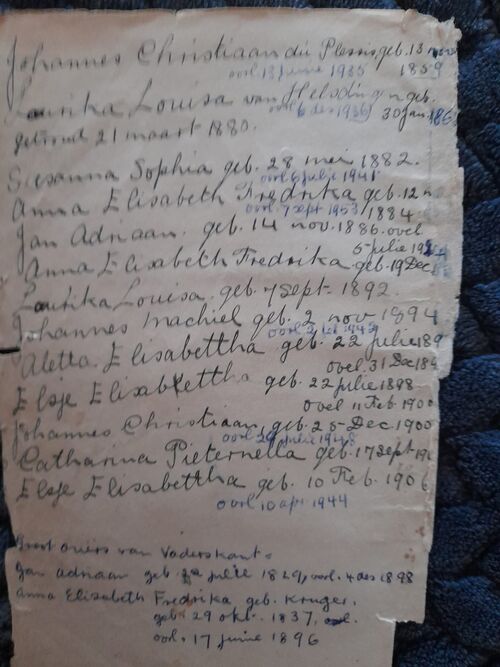 Johannes Christiaan du Plessis, geb. 13 nov
oorl 13 junie 1935 1859
Laurika Louisa van Helsdingen geb.
oorl 6 des 1936 30 Jan. 186
getroud 21 maart 1880.
Susanna Sophia geb. 28 mei 1882.
oorl 6 julie 1941
Anna Elisabeth Fredrika geb. 12 n
oorl 7 sept 1953 1884
Jan Adriaan. geb. 14 nov. 1886. ovel
5 julie 19
Anna Elisabeth Fredrika geb. 19 Dec
Laurika Louisa. geb. 7 Sept. 1892.
Johannes Machiel geb. 2 nov 1894
oorl 1949
Aletta. Elisabettha geb. 22 julie 189
ovel. 31 Dec 189
Elsje Elisabettha geb. 22 julie 1898
Ovel 11 Feb. 1900
Johannes Christiaan, geb. 25 Dec 1900
oorl 29 julie 1948
Catharina Pieternella geb. 17 Sept 19
Elsje Elisabettha geb. 10 Feb. 1906
oorl 10 apr 1944
Groot ouers van Vaderskant =
Jan adriaan geb julie 1829, oorl. 4 des 1898
anna Elizabeth Fredrika geb. Kruger.
geb. 29 okt. 1837,
oorl. 17 junie 1896